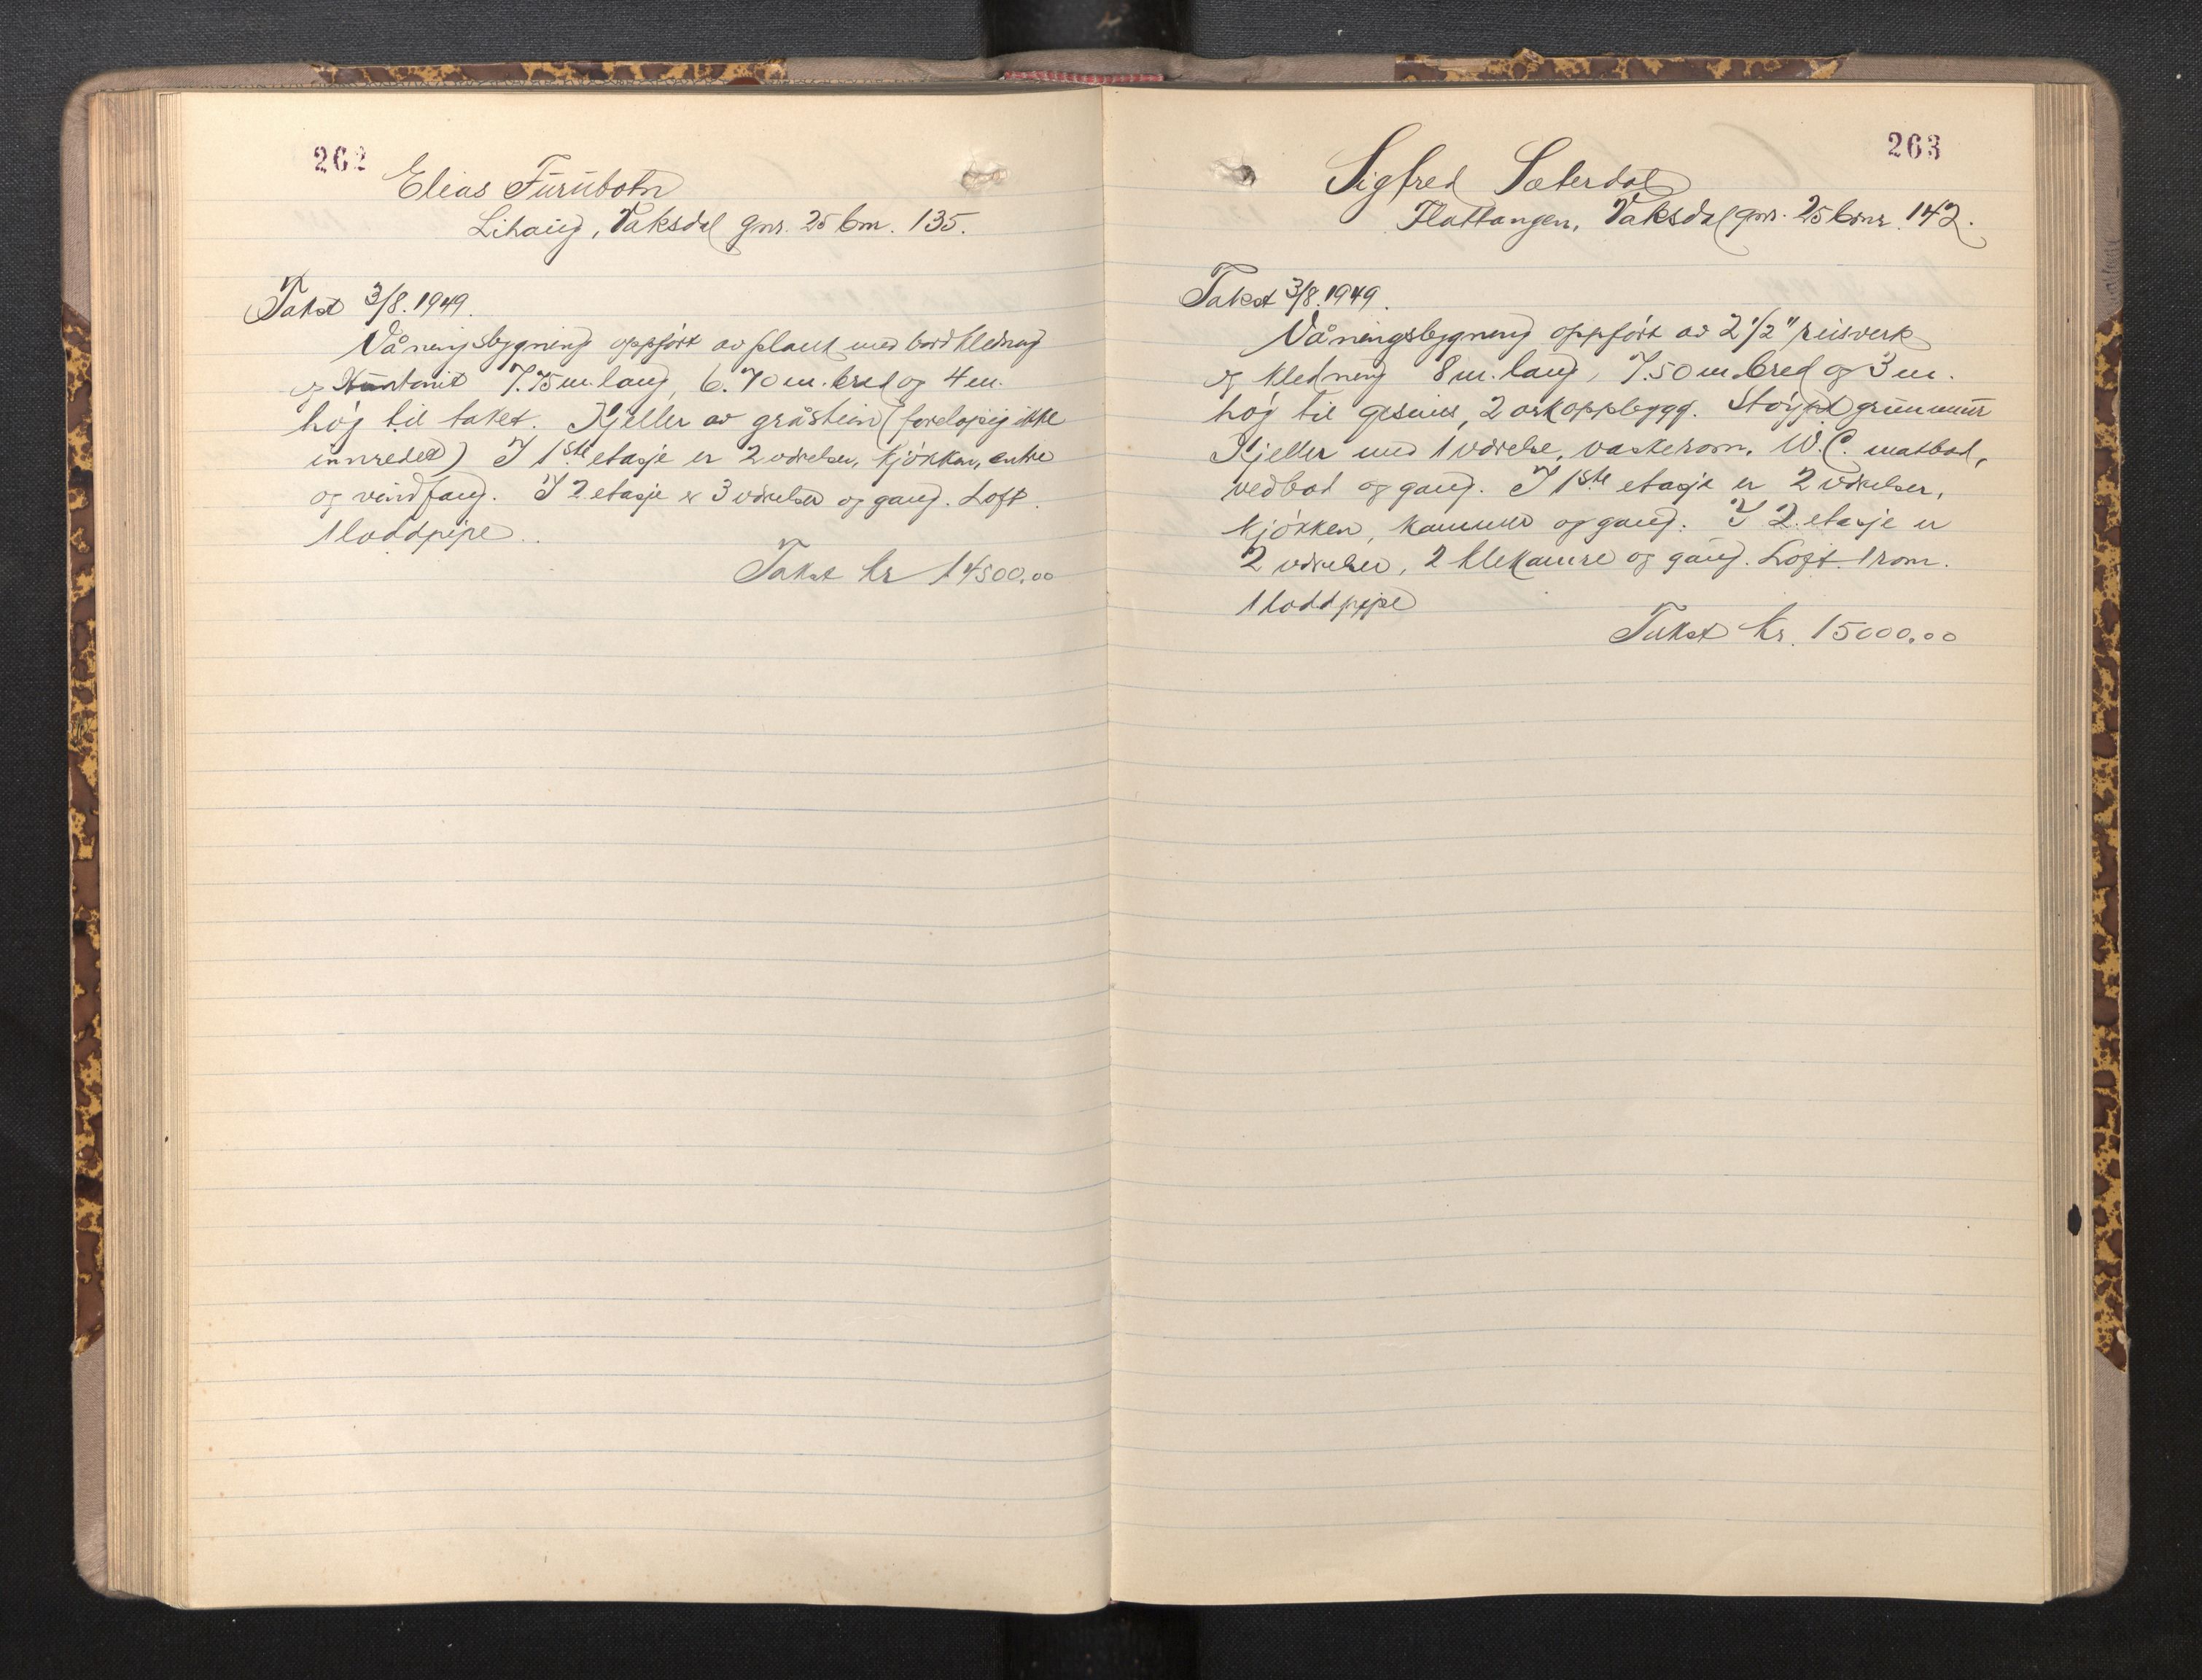 262
Elias Furubotn
Lihaug, Vaksdal gnr. 25 bnr. 135.
Takst 3/8. 1949.
Våningsbygning oppført av plank med bordkledning
og Huntonit 7.75 m. lang, 6.70 m. bred og 4 m.
høg til taket. Kjeller av gråstein (foreløpig ikke
innredet) I 1ste etasje er 2 værelser, kjøkken, entre
og vindfang. I 2 etasje er 3 værelser og gang. Loft.
1 loddpipe.
Takst kr 14500.00
263
Sigfred Sæterdal
Flattangen, Vaksdal gnr. 25 bnr. 142.
Takst 3/8. 1949.
Våningsbygning oppført av 2 1/2" reisverk
og kledning 8 m. lang, 7.50 m bred og 3 m.
høg til gesims, 2 arkoppbygg. Støypt grunnmur
Kjeller med 1 værelse, vaskerom, W.C. matbod,
vedbod og gang. I 1ste etasje er 2 værelser,
kjøkken, kammer og gang. I 2. etasje er
2 værelser, 2 klekamre og gang. Loft 1 rom.
1 loddpipe
Takst kr. 15000.00